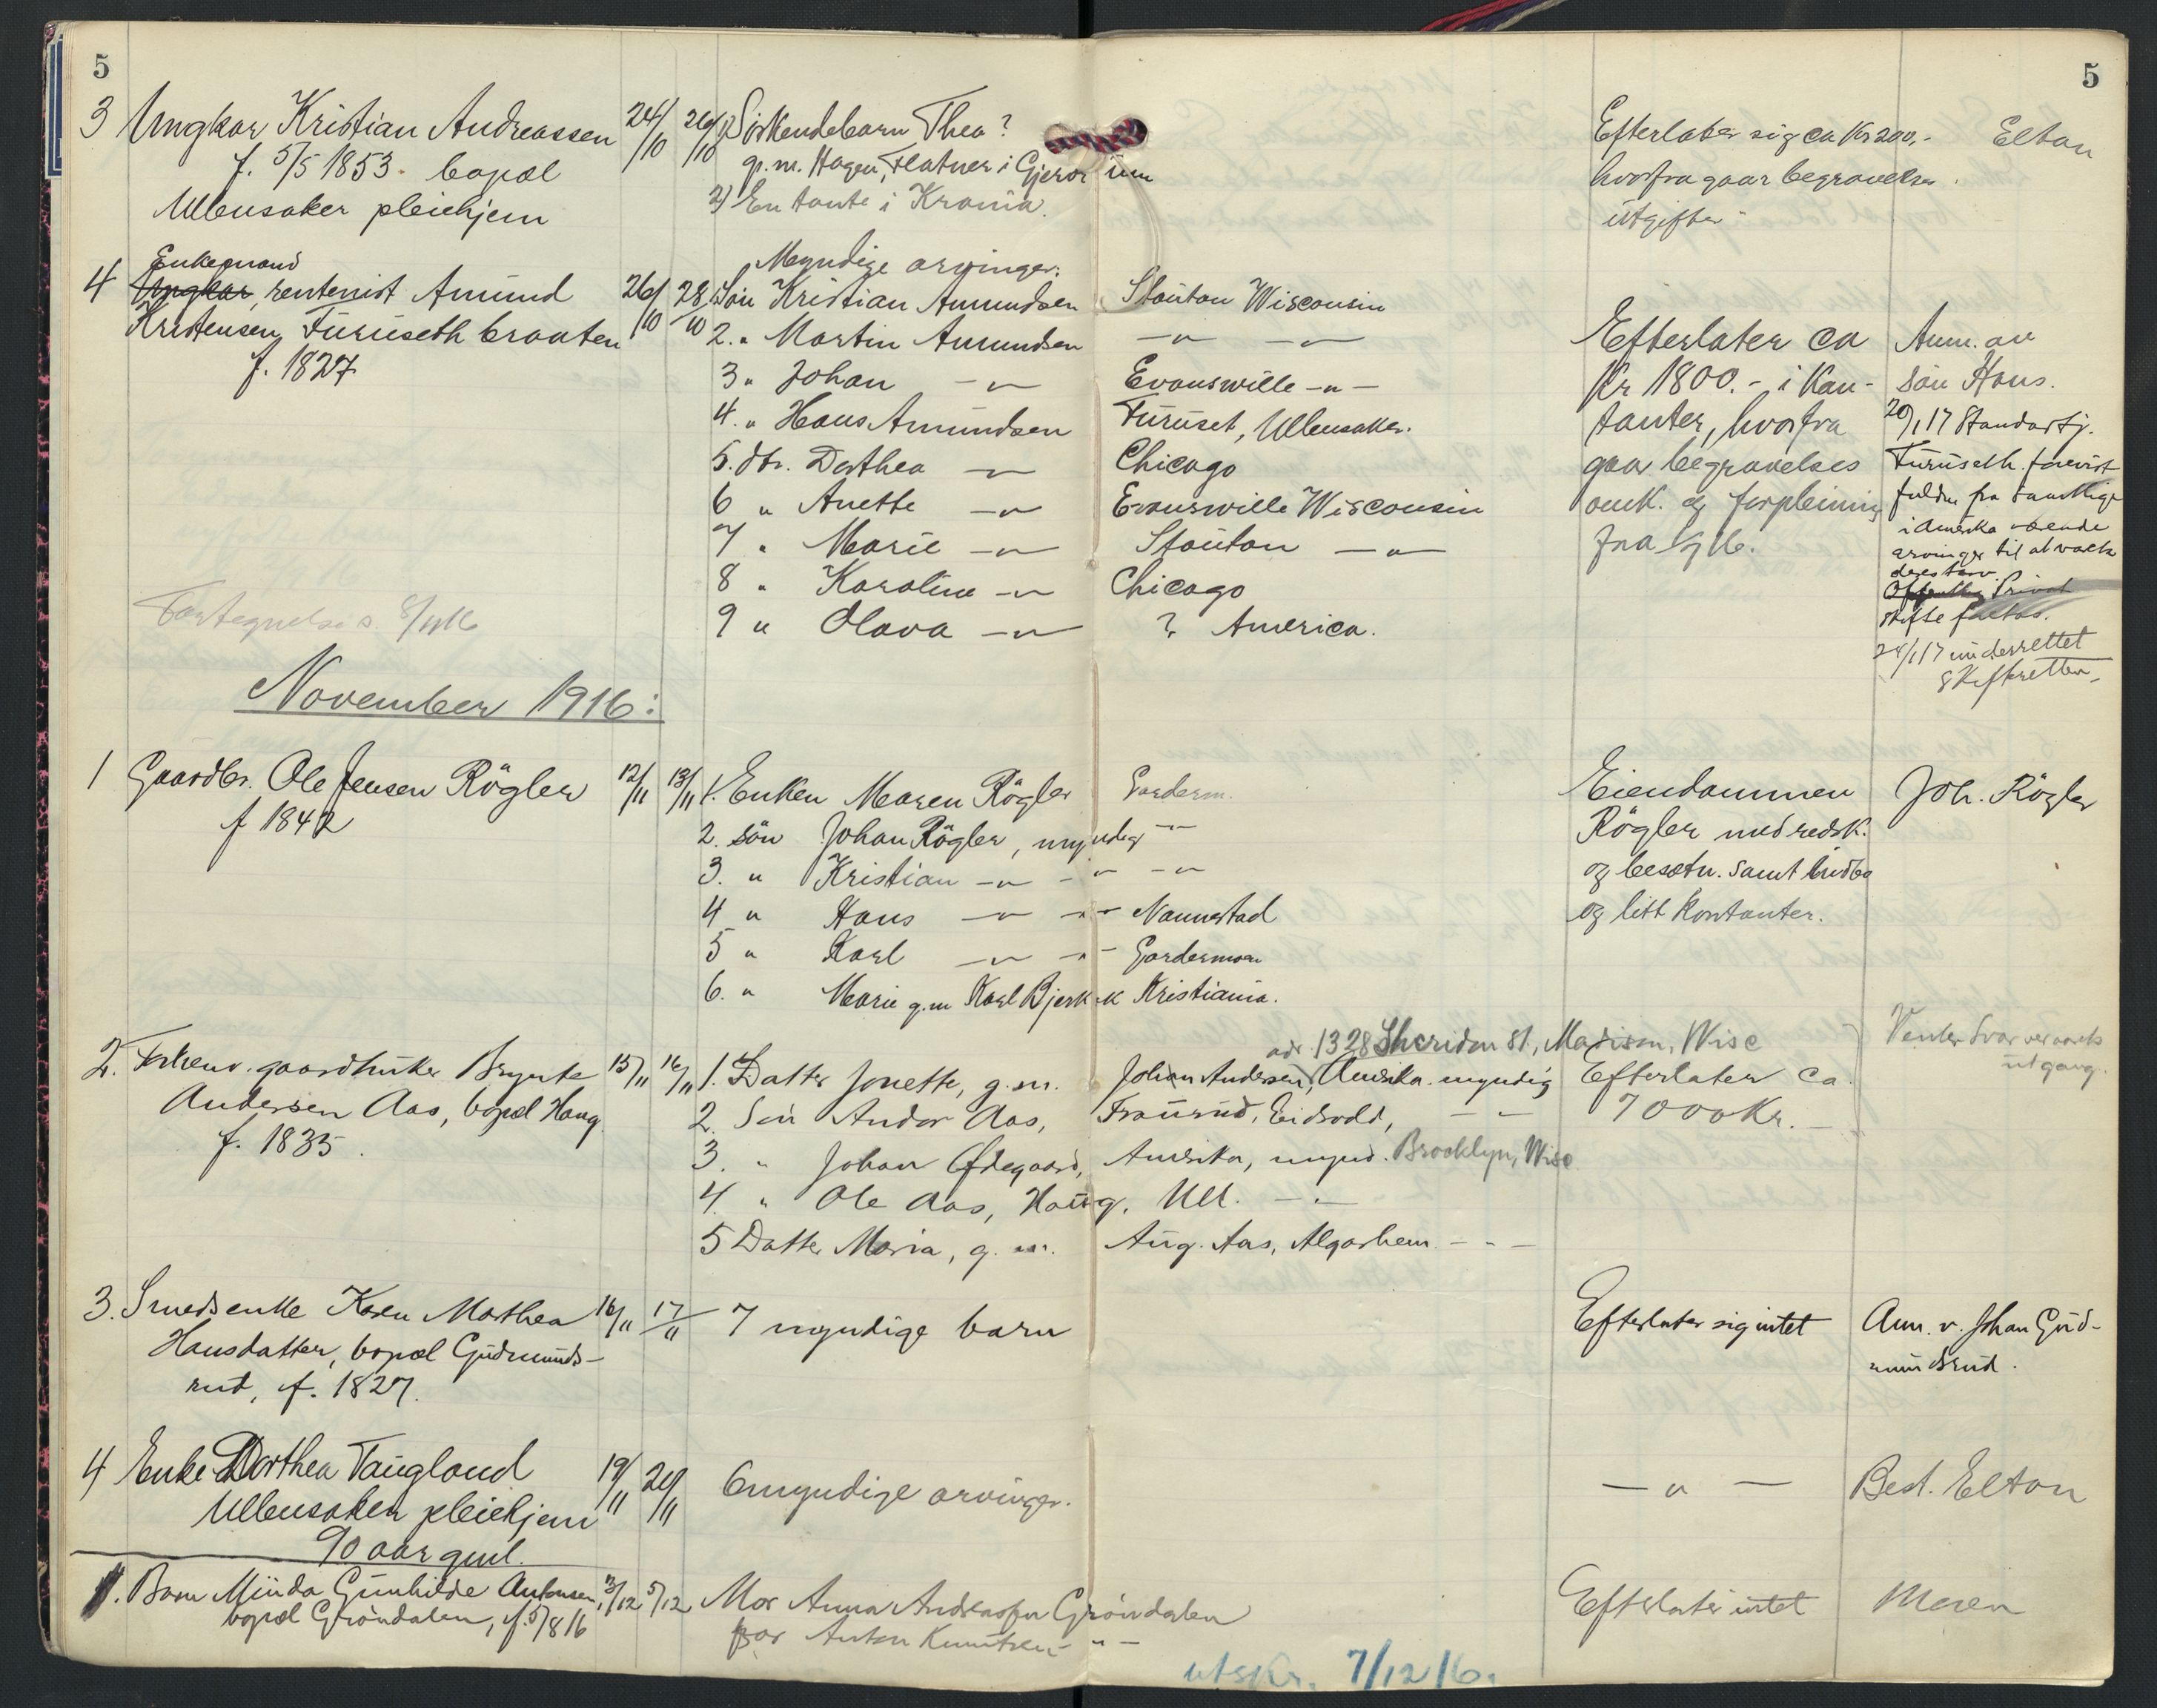 5
5
3 Ungkar Kristian Andreassen 24/10 26/10 1) Söskendebarn Thea? Efterlater sig ca Kr 200,- Elton
f. 5/5 1853. bopæl g.m. Hagen, Flatner i Gjerdrum hvorfra gaar begravelses
Ullensaker pleiehjem 2) En tante i Krania. utgifter
Enkemand Myndige arvinger:
4 Ungkar, rentenist Amund 26/10 28/10 1. Sön Kristian Amundsen Stouton Wisconsin
Kristensen Furuseth braaten 2. " Martin Amundsen —"— —"— Efterlater ca Anm. av
f. 1827 3 " Johan —"— Evanswille —"— Kr 1800.- i Kon- sön Hans.
4. " Hans Amundsen Furuset, Ullensaker. tanter, hvorfra 20/1 17 Hans
5. dtr. Dorthea —"— Chicago gaar begravelses Furuseth forevist
6 " Anette —"— Evanswille Wisconsin omk. og forpleining fuldm fra samtlige
7 " Marie —"— Stouton —"— fra i Amerika værende
8 " Karoline —"— Chicago arvinger til at vareta
deres tarv.
Offentlig Privat
Fortegnelse s. 8/11 16 9 " Olava —"— ? America. skifte
24/1 17 underrettet
skifteretten.
November 1916:
1 Gaardbr. Ole Jensen Rögler 12/11 13/11 1. Enken Maren Rögler Garderm. Eiendommen Joh. Rögler
f 1842 2. sön Johan Rögler, myndig —"— Rögler med redsk.
3. " Kristian —"— —"— —"— og besætn. samt indbo
4 " Hans —"— —"— Nannestad og litt kontanter.
5 " Karl —"— —"— Gardermoen
6. " Marie g.m Karl Bjerk Kristiania.
adr. 1328 Sheridan St., Madison, Wisc Venter svar
2. gaardbruker Brynte 15/11 16/11 1. Datter Jonette, g.m. Johan Andersen, Amerika. myndig Efterlater ca. utgang.
Andersen Aas, bopæl Haug 2. Sön Andor Aas, Eidsvold, — — 7000 Kr. —
f. 1835. 3. " Johan Ødegaard, Amerika, mynd. Brooklyn, Wisc
4. " Ole Aas, Haug, Ull. —"—
5 Datter Maria, g.m. Aug. Aas, Algarheim. —"—
3. Smedsenke Karen Marthea 16/11 17/11 7 myndige barn Efterlater sig intet Anm. v. Johan Gud-
Hansdatter, bopæl Gudmunds- mundsrud.
rud, f. 1827.
4 Enke Dorthea Taugland 19/11 20/11 6 myndige arvinger. —"— Best. Elton
Ullensaker pleiehjem
90 aar gml.
1. Barn Minda Gunhilde Antonsen, 3/12 5/12 Mor Anna Andreassen Gröndalen Efterlater intet Moren
bopæl Gröndalen, f. 5/8 16 far Anton Knutsen —"—
utskr. 7/12 16.